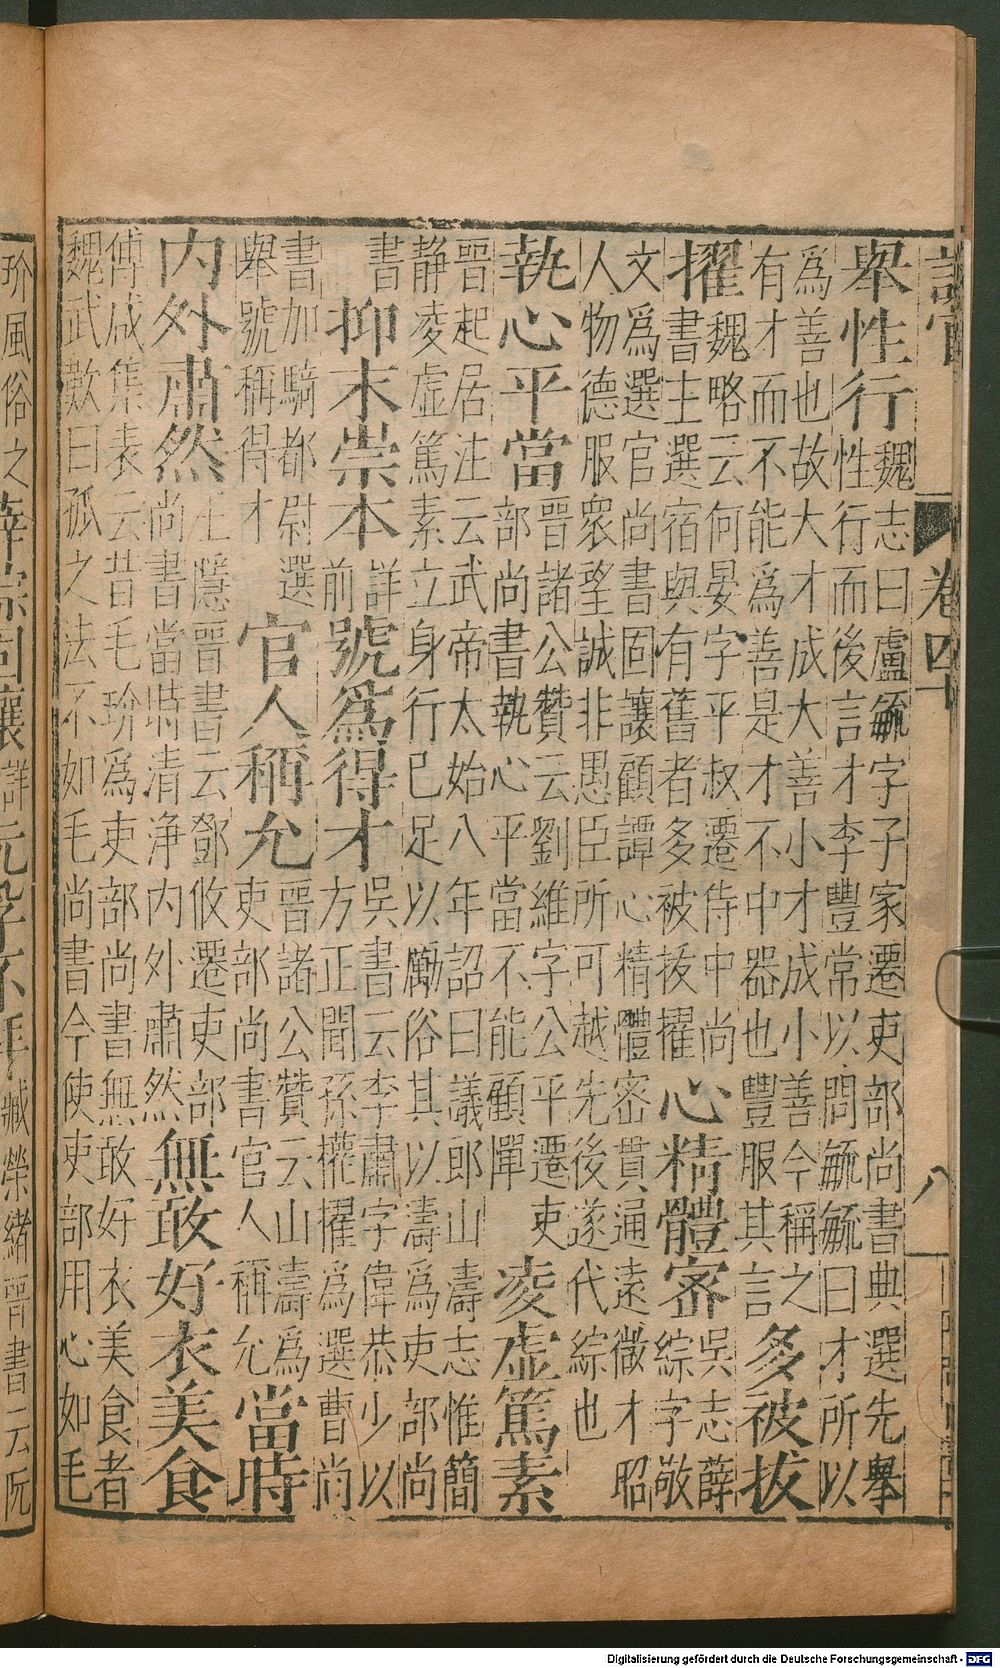 設官 卷四十 八
舉性行 魏志曰盧毓字子家遷吏部尚書典選先舉
性行而後言才李豐常以問毓毓曰才所以
為善也故大才成大善小才成小善今稱之
有才而不能為善是才不中器也豐服其言 多被拔
擢 魏略云何晏字平叔遷侍中尚
書主選宿與有舊者多被拔擢 心精體密 吳志薛
綜字敬
文爲選官尚書固讓顧譚心精體密貫通遠微才昭
人物德服衆望誠非愚臣所可越先後遂代綜也
執心平當 晉諸公贊云劉維字公平遷吏
部尚書執心平當不能顧憚 凌虛篤素
晉起居注云武帝太始八年詔曰議郎山濤志惟簡
靜凌虛篤素立身行己足以勵俗其以濤爲吏部尚
書 抑末崇本 詳
前 號爲得才 吳書云李肅字偉恭少以
方正聞孫權擢爲選曹尚
書加騎都尉選
舉號稱得才 官人稱允 晉諸公贊云山濤爲
吏部尚書官人稱允 當時
内外肅然 王隱晉書云鄧攸遷吏部
尚書當時清淨内外肅然 無敢好衣美食
傅咸集表云昔毛玠爲吏部尚書無敢好衣美食者
魏武歎曰孤之法不如毛尚書今使吏部用心如毛
玠風俗之 薛綜固讓 詳 阮孚不拜 臧榮緒晉書云阮
Digitalisierung gefördert durch die Deutsche Forschungsgemeinschaft - DFG